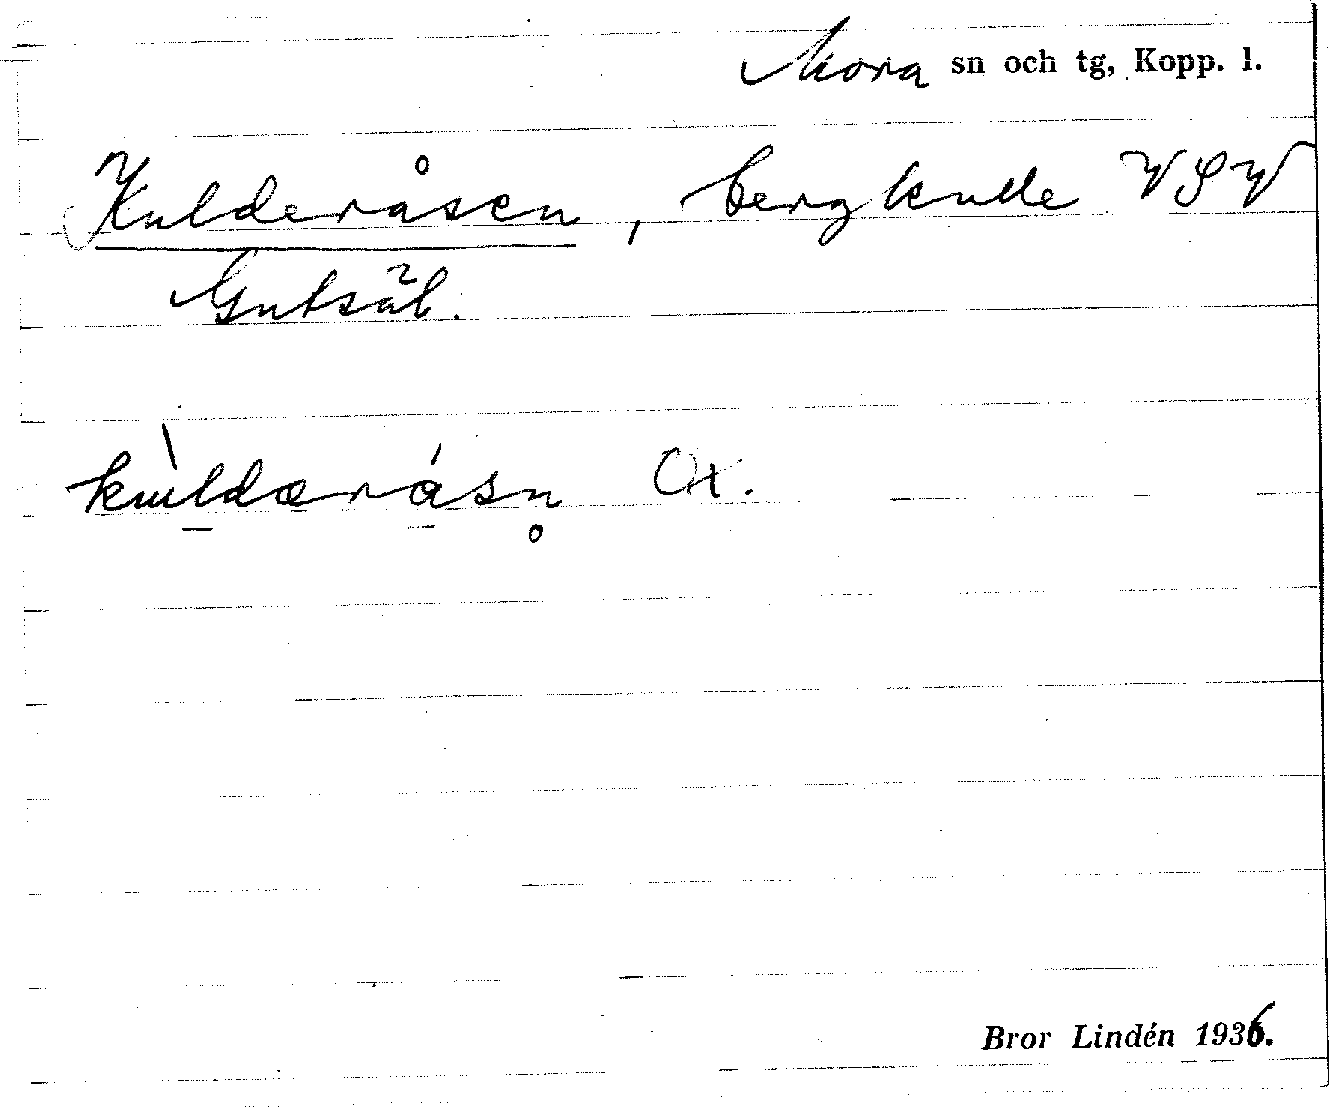 Mora sn och tg, Kopp. l.
Kulderåsen, bergkulle VSV
Gutsäl.
kuldæråsn Ox.
Bror Lindén 1936.